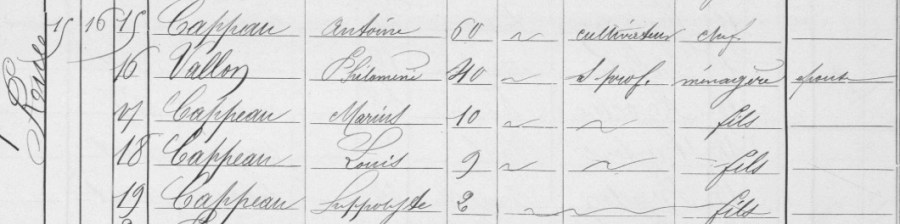 15 16 15 Cappeau Antoine 60 ~ cultivateur chef
16 Vallon Philomène 40 ~ s prof. ménagère
17 Cappeau Marius 10 ~ ~ fils
18 Cappeau Louis 9 ~ ~ fils
19 Cappeau 2 ~ ~ fils